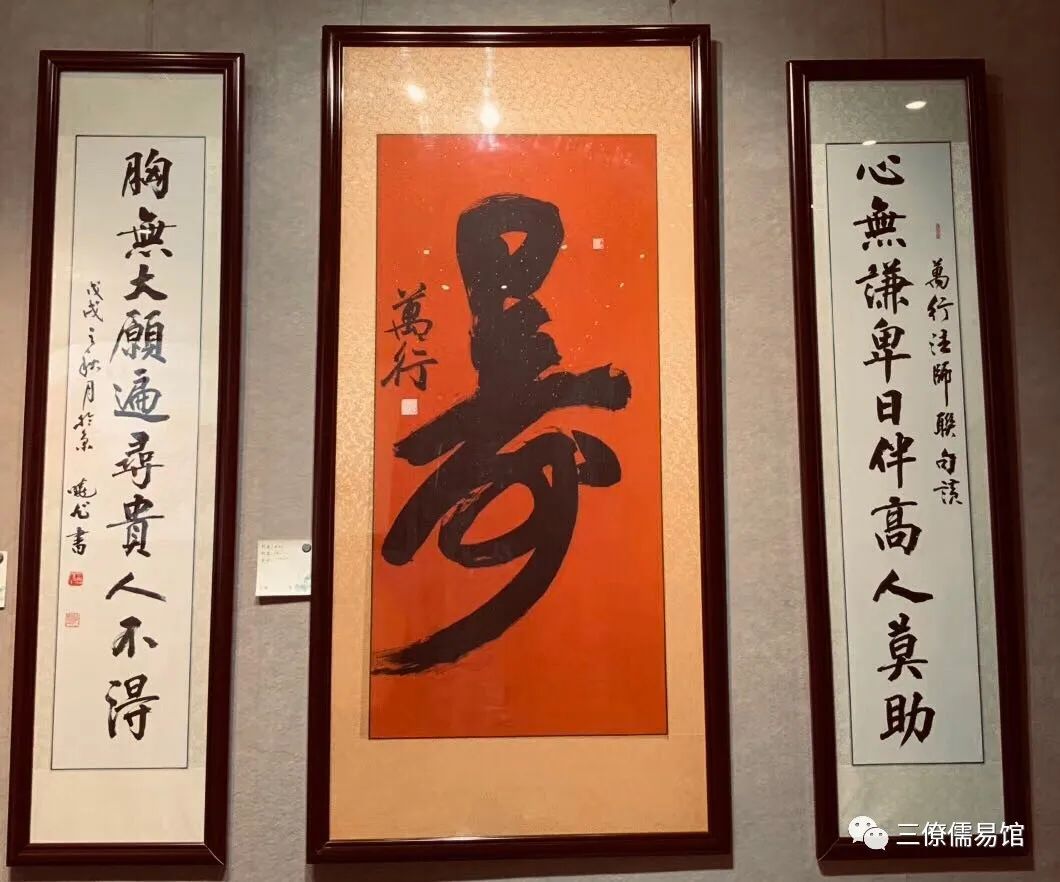 心無謙卑日伴高人莫助
萬行法師聯句讀
寿
萬行
胸無大願遍尋貴人不得
戊戌之秋月於京
書
三僚儒易馆